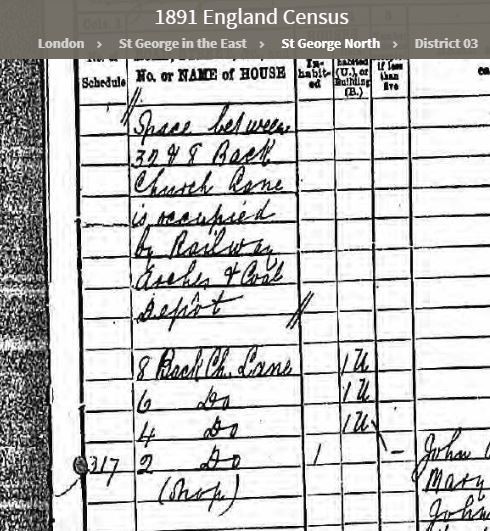 1891 England Census
London > St George in the East > St George North > District 03
No. of Schedule
No. or NAME of HOUSE
In-habit-ed
habited (U.), or Building (B.)
if less than five
Space between
32 & 8 Back
Church Lane
is occupied
by Railway
Arches & Coal
Depôt //
8 Back Ch. Lane 1 U
6 Do 1 U
4 Do 1 U
317 2 Do 1 – John
(Shop) Mary
John